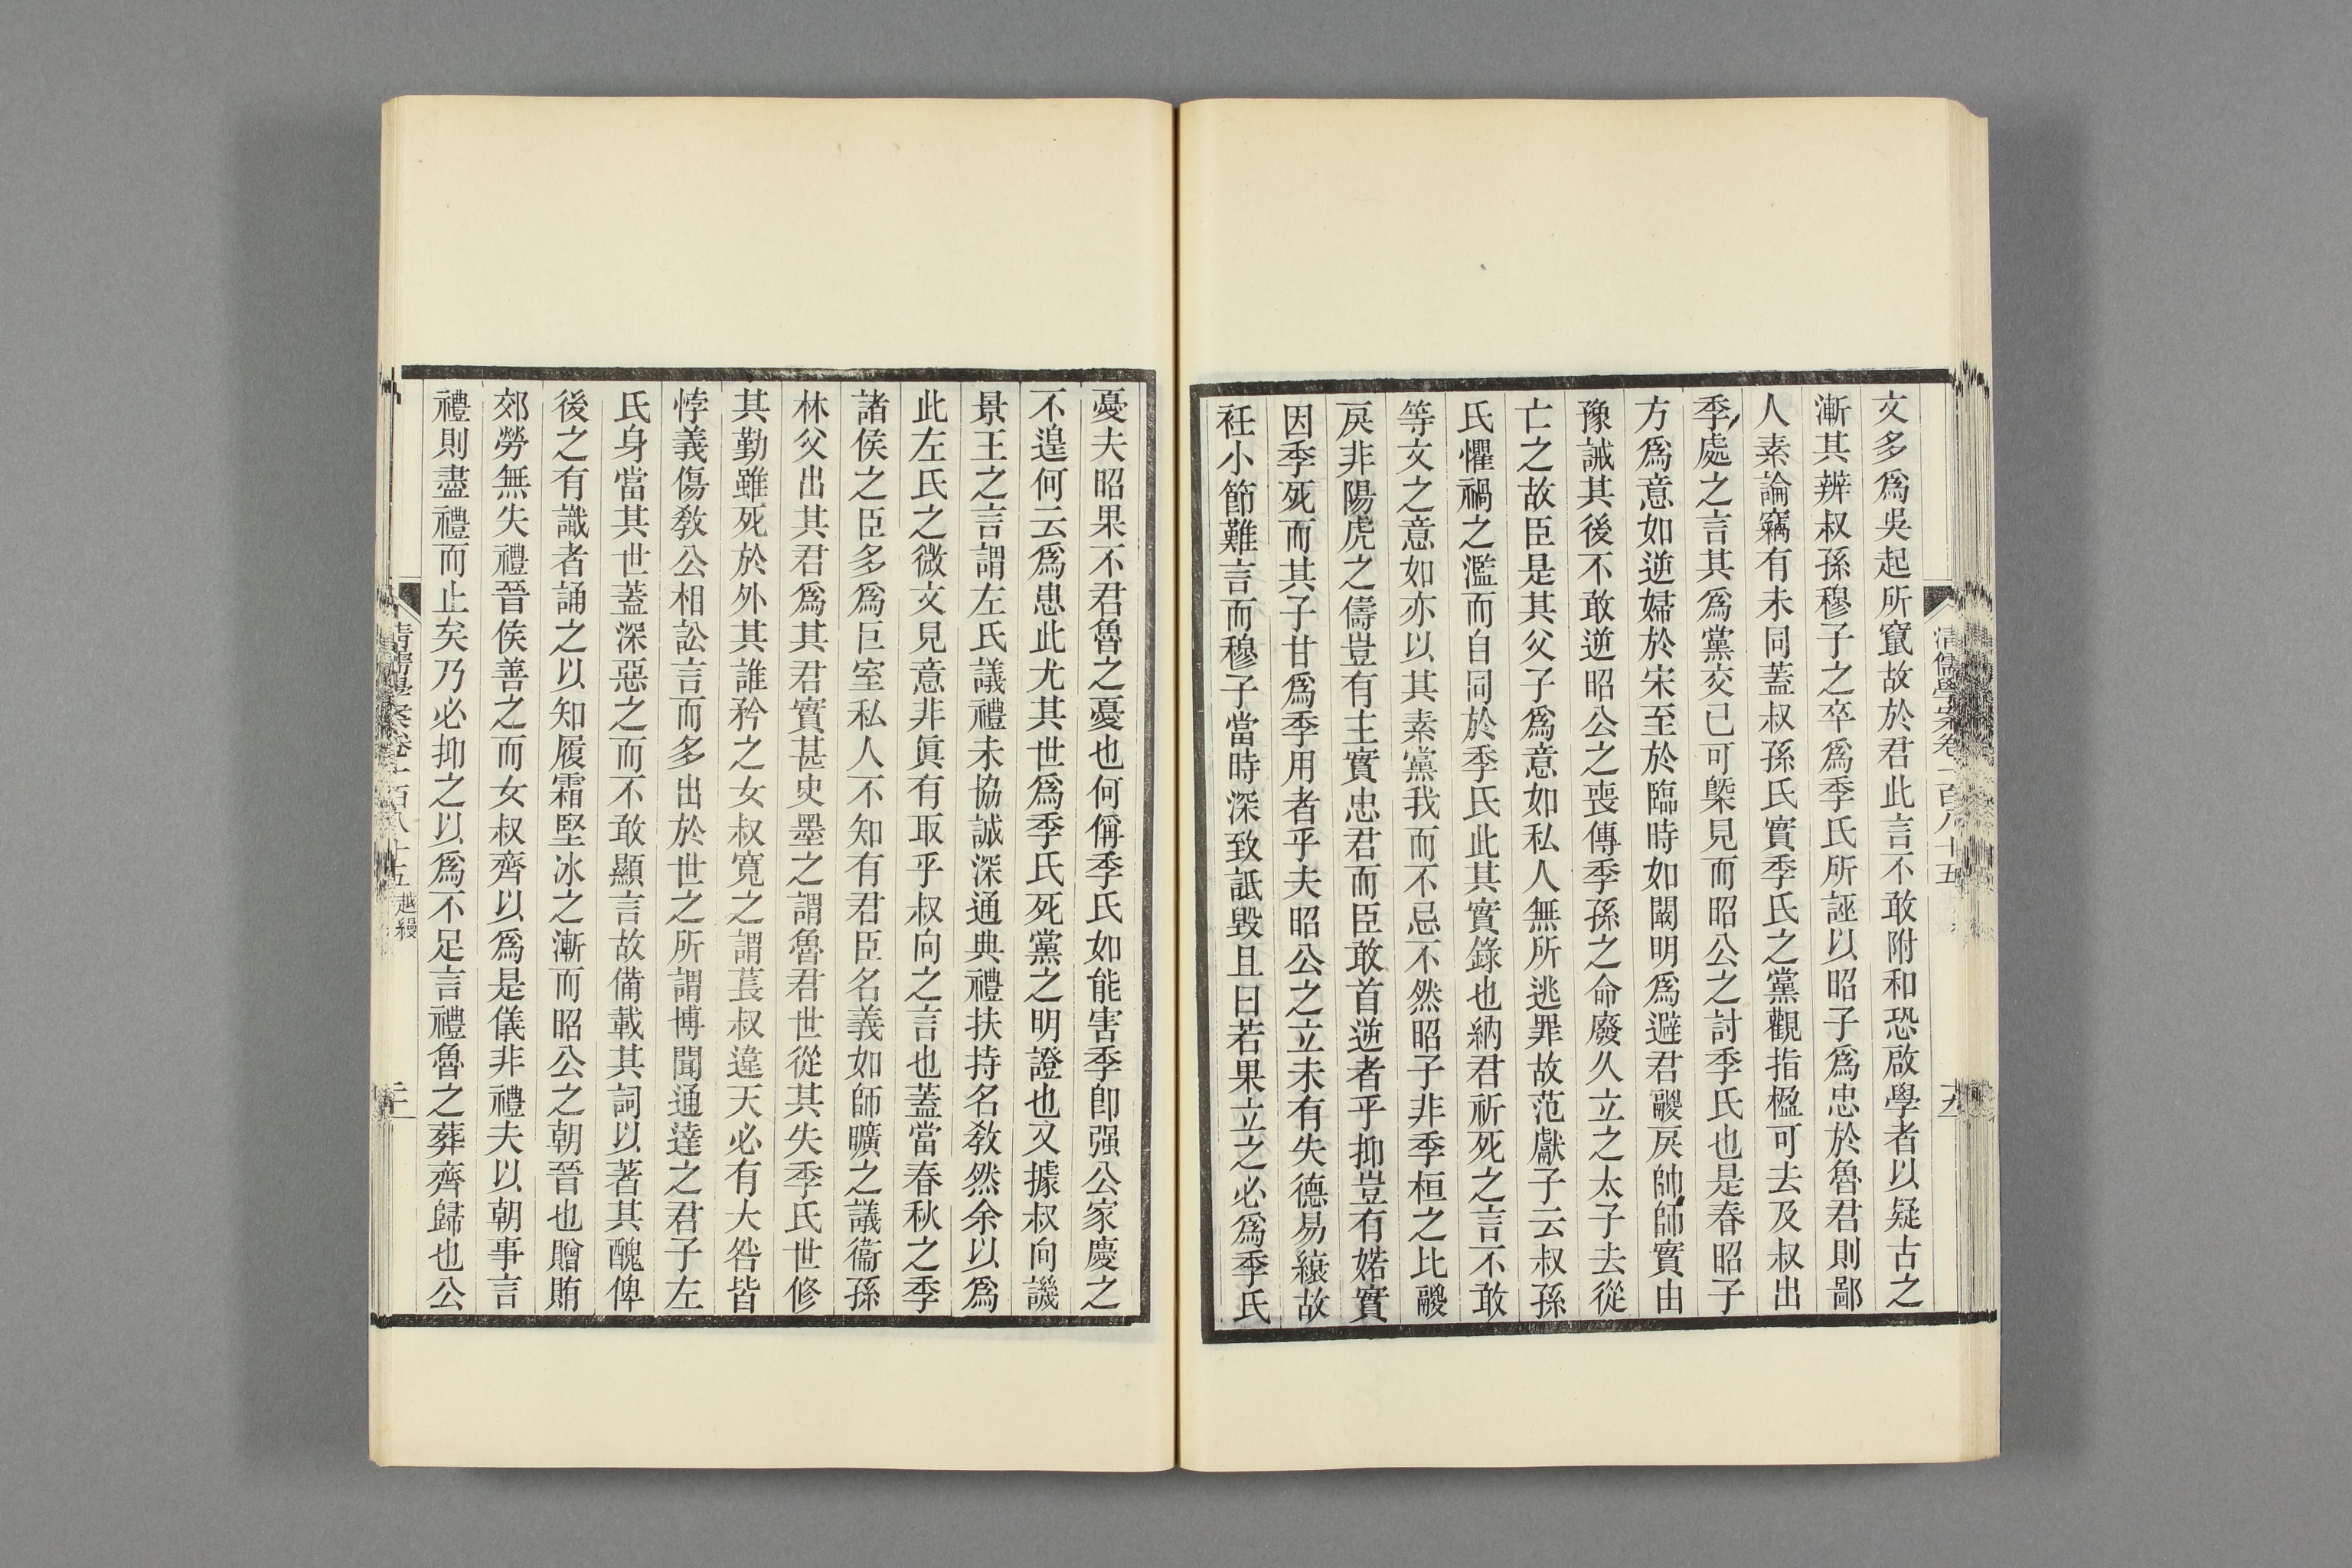 清儒學案卷一百八十五
文多爲吳起所竄故於君此言不敢附和恐啟學者以疑古之
漸其辨叔孫穆子之卒爲季氏所誣以昭子爲忠於魯君則鄙
人素論竊有未同蓋叔孫氏實季氏之黨觀指楹可去及叔出
季處之言其爲黨交已可槩見而昭公之討季氏也是春昭子
方爲意如逆婦於宋至於臨時如闞明爲避君鬷戾帥師實由
豫誡其後不敢逆昭公之喪傳季孫之命廢久立之太子去從
亡之故臣是其父子爲意如私人無所逃罪故范獻子云叔孫
氏懼禍之濫而自同於季氏此其實錄也納君祈死之言不敢
等文之意如亦以其素黨我而不忌不然昭子非季桓之比鬷
戾非陽虎之儔豈有主實忠君而臣敢首逆者乎抑豈有婼實
因季死而其子甘爲季用者乎夫昭公之立未有失德易縗故
衽小節難言而穆子當時深致詆毀且曰若果立之必爲季氏
憂夫昭果不君魯之憂也何偁季氏如能害季卽强公家慶之
不遑何云爲患此尤其世爲季氏死黨之明證也又據叔向譏
景王之言謂左氏議禮未協誠深通典禮扶持名敎然余以爲
此左氏之微文見意非眞有取乎叔向之言也蓋當春秋之季
諸侯之臣多爲巨室私人不知有君臣名義如師曠之議衞孫
林父出其君爲其君實甚史墨之謂魯君世從其失季氏世修
其勤雖死於外其誰矜之女叔寬之謂萇叔違天必有大咎皆
悖義傷敎公相訟言而多出於世之所謂博聞通達之君子左
氏身當其世蓋深惡之而不敢顯言故備載其詞以著其醜俾
後之有識者誦之以知履霜堅冰之漸而昭公之朝晉也贈賄
郊勞無失禮晉侯善之而女叔齊以爲是儀非禮夫以朝事言
禮則盡禮而止矣乃必抑之以爲不足言禮魯之葬齊歸也公
清儒學案卷一百八十五 越縵